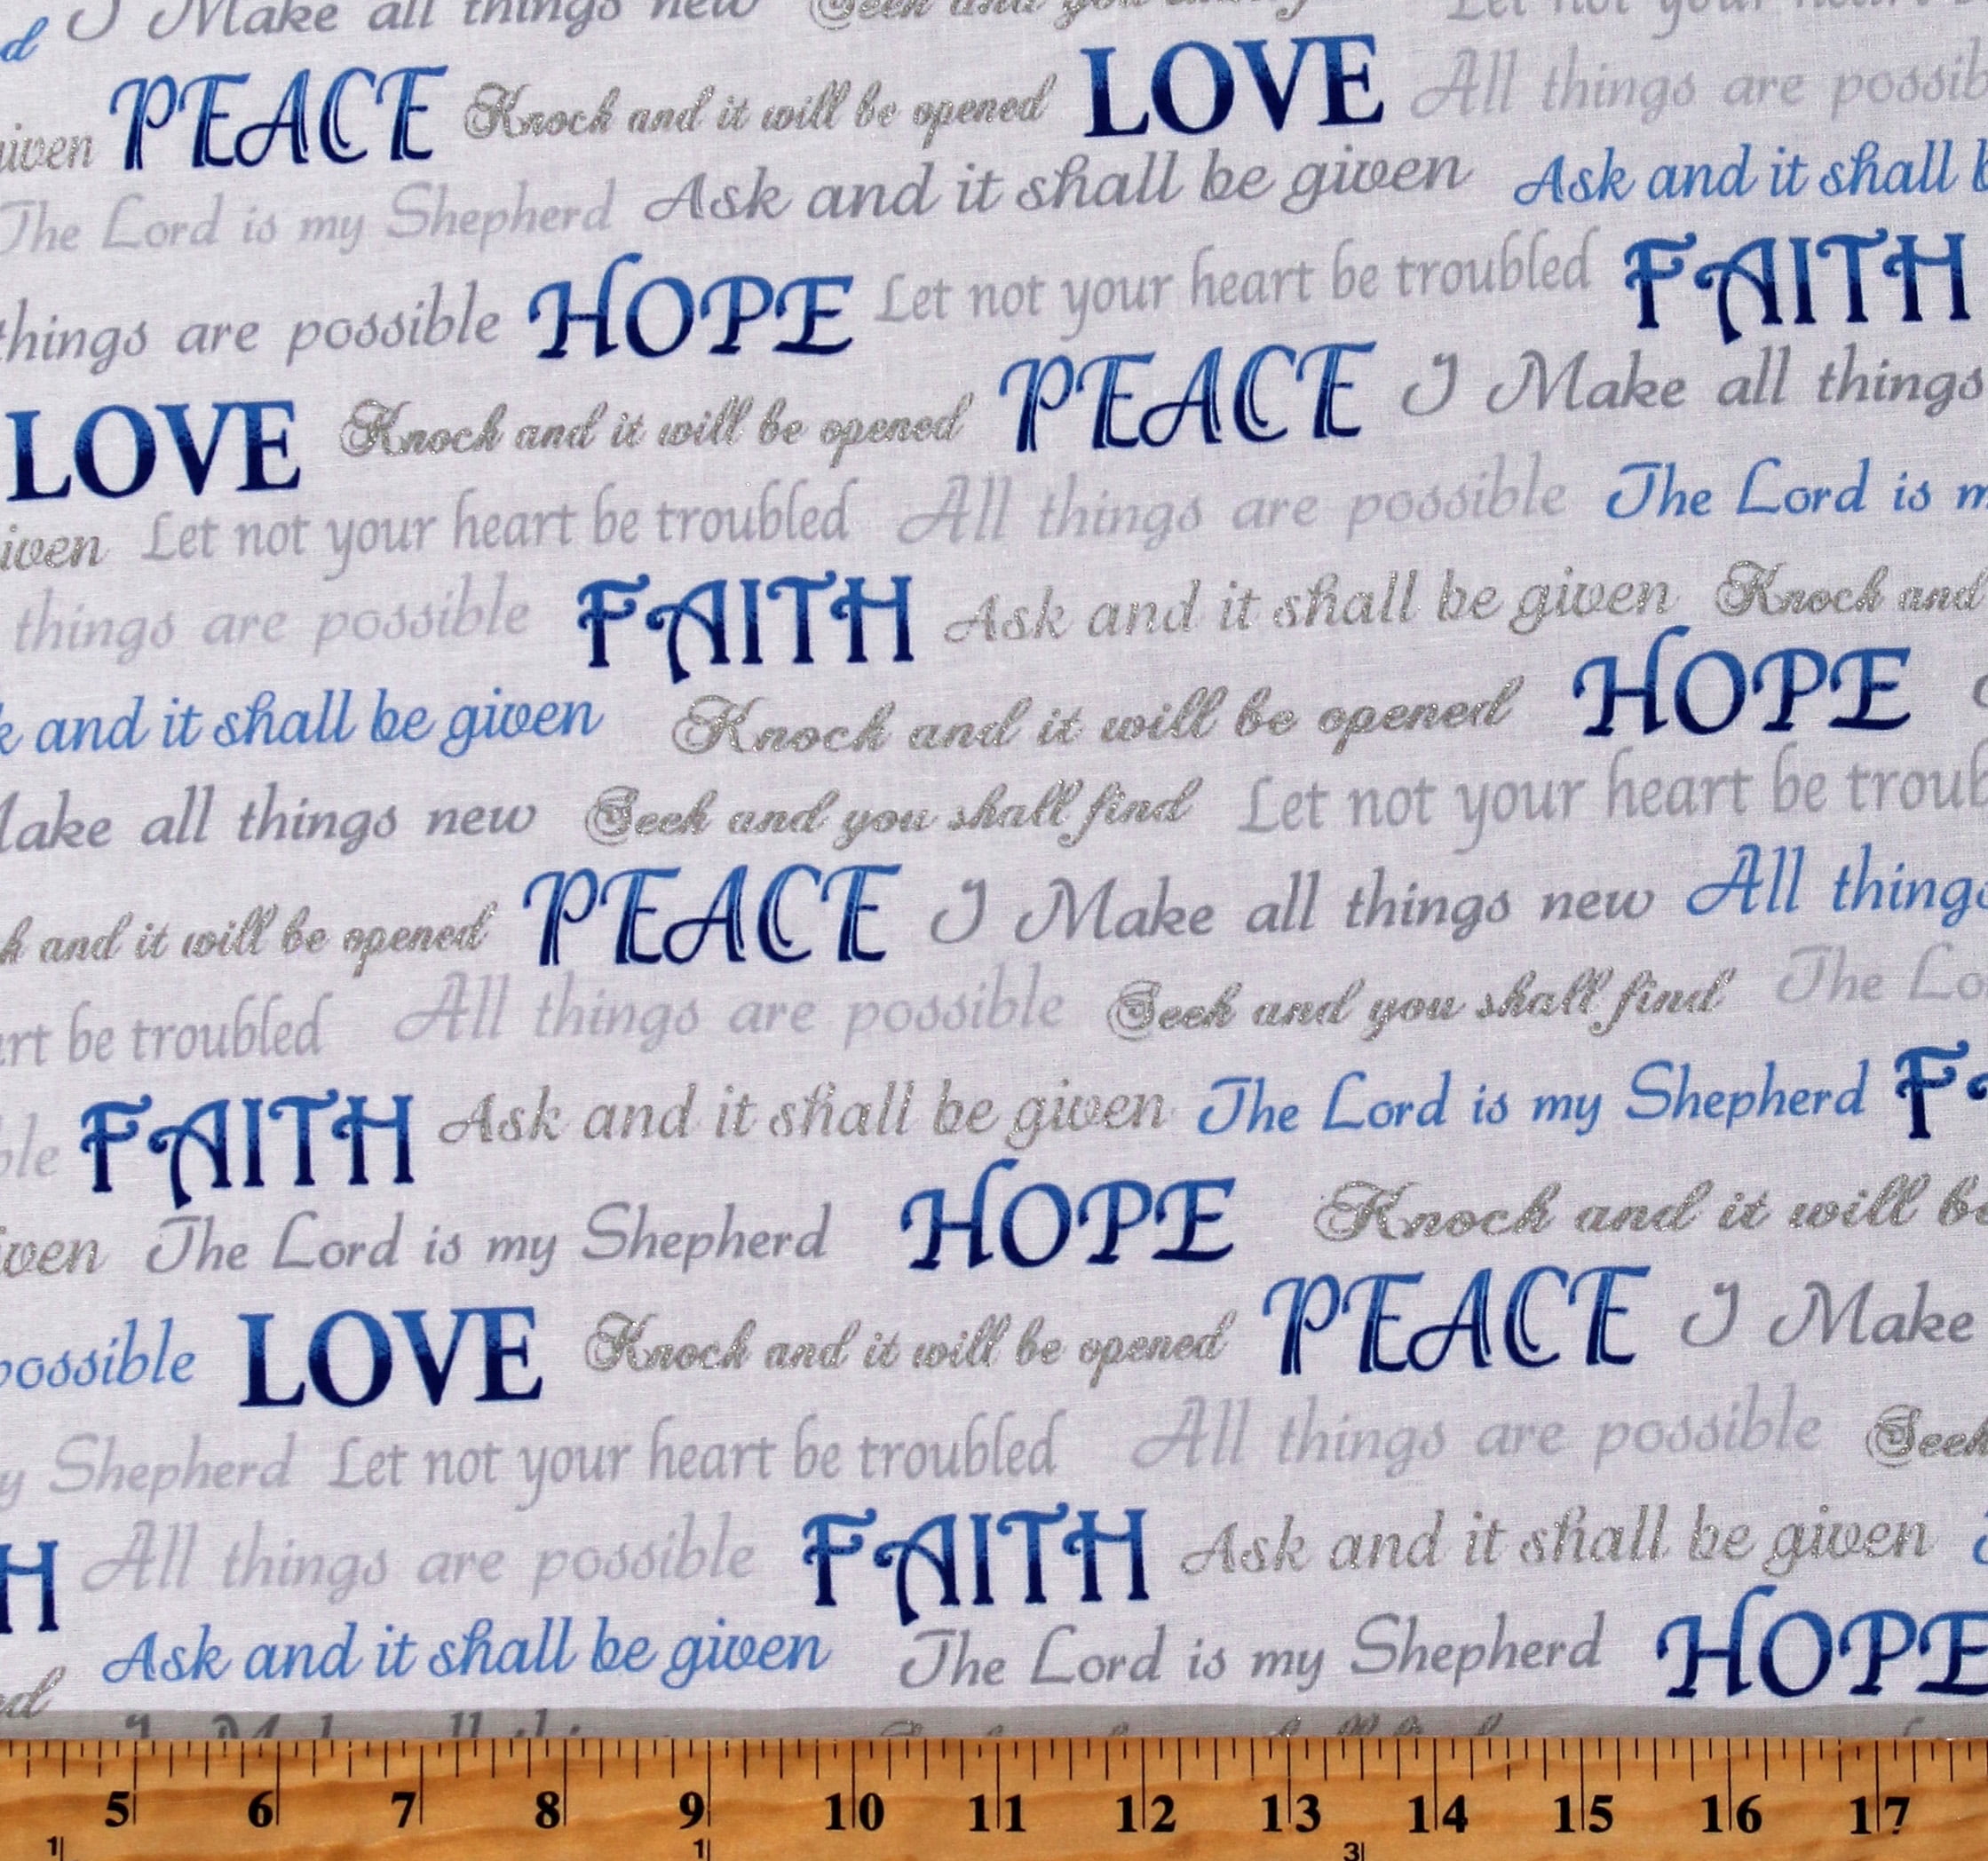 I Make all things new Seek and you Let not your heart
PEACE Knock and it will be opened LOVE All things are
The Lord is my Shepherd Ask and it shall be given Ask and it shall
things are possible HOPE Let not your heart be troubled FAITH
LOVE Knock and it will be opened PEACE I Make all things
Let not your heart be troubled All things are possible The Lord is
things are possible FAITH Ask and it shall be given Knock and
and it shall be given Knock and it will be opened HOPE
all things new Seek and you shall find Let not your heart be
and it will be opened PEACE I Make all things new All things
be troubled All things are possible Seek and you shall find The
FAITH Ask and it shall be given The Lord is my Shepherd
The Lord is my Shepherd HOPE Knock and it will be
possible LOVE Knock and it will be opened PEACE I Make
Shepherd Let not your heart be troubled All things are possible Seek
H All things are possible FAITH Ask and it shall be given
Ask and it shall be given The Lord is my Shepherd HOPE
5 6 7 8 9 10 11 12 13 14 15 16 17
1 1 3